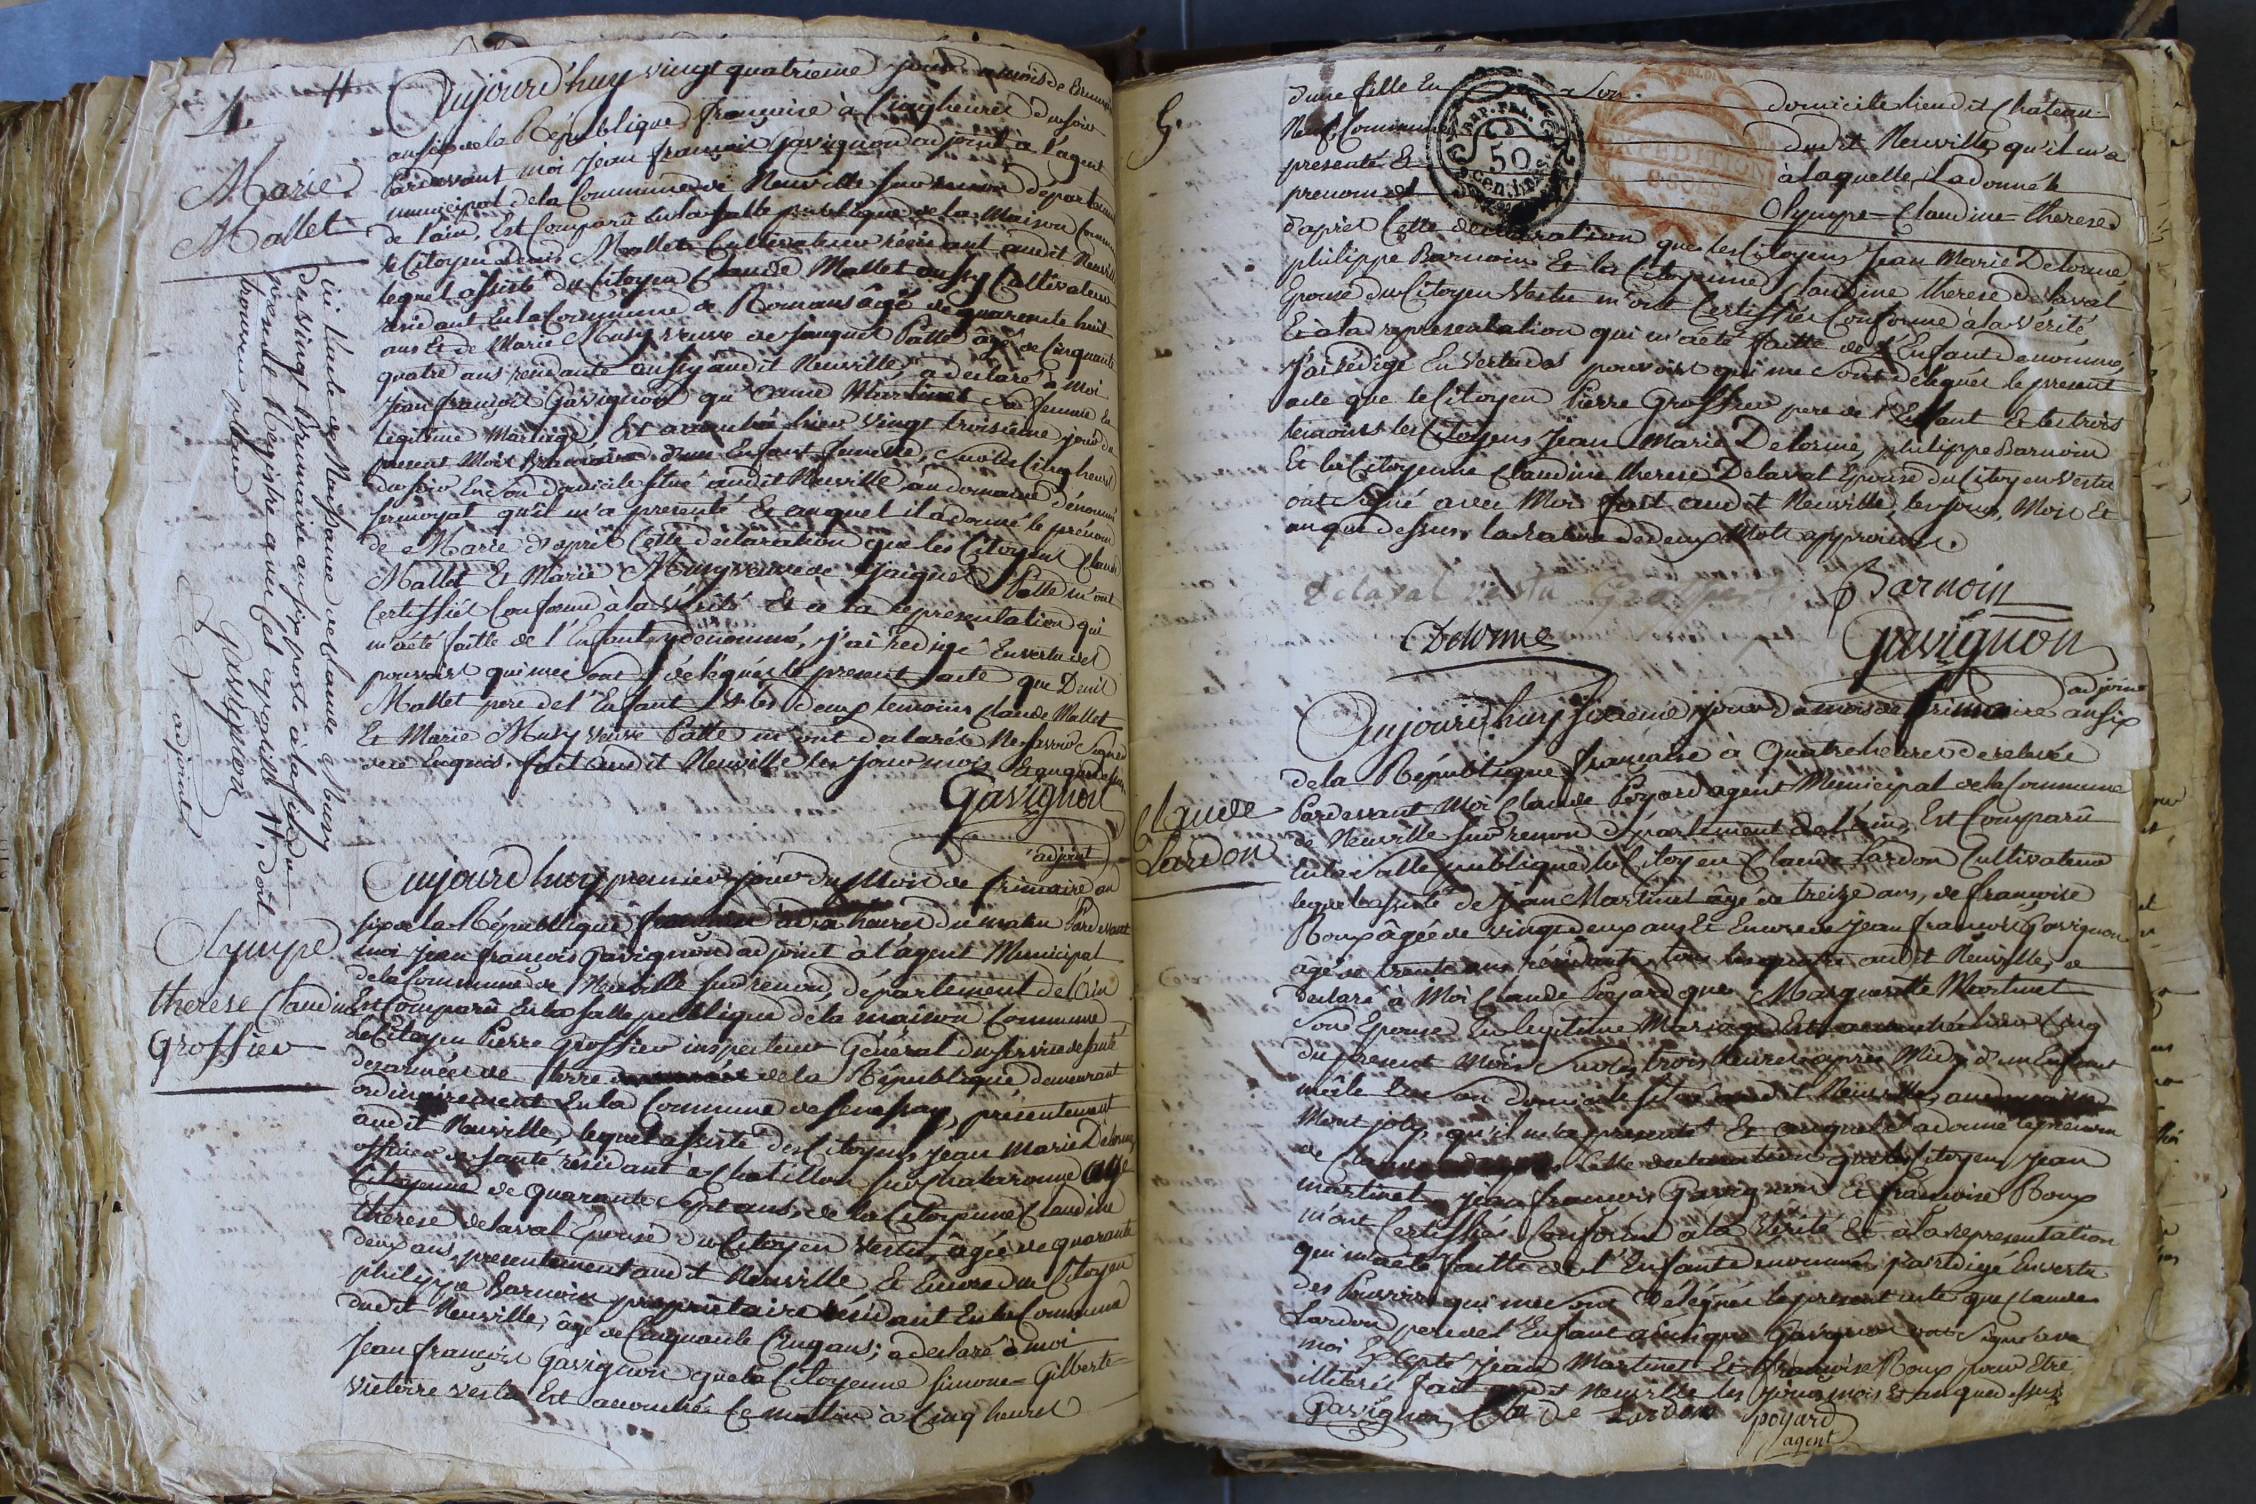 4.
Marie
Mallet
#
Aujourd'huy vingt quatrieme jour du mois de Brumaire
an six de la République française à Cinq heures du soir
Pardevant moi Jéan françois Gavignon adjoint à l'agent
municipal de la Commune de Neuville sur renon département
de l'ain, Est Comparû En la salle publique de la Maison Commune
le Citoyen denis Mallet Cultivateur résidant audit Neuville
lequel assisté du Citoyen Claude Mallet aussy Cultivateur
résidant En la Commune de Romans âgé de quarente huit
ans Et de Marie Musy veuve de Jaiques Patte âgé de Cinquante
quatre ans residante aussy audit Neuville, a déclaré à Moi
Jean françois Gavignon qu' anne Martinet sa femme En
légitime Mariage, Est accouchée hier vingt troisieme jour du
present Mois Brumaire d'une Enfant femelle, sur les Cinq heures
du soir En son domicile situé audit Neuville au domaine dénommé
fermoyat qu'il m'a presenté Et auquel il a donné le prénom
de Marie d'après Cette déclaration que les Citoyens Claude
Mallet Et Marie Musy veuve de Jaiques Patte m'ont
Certiffiés Conforme à la Vérité Et à la représentation qui
m'a été faitte de l'Enfant y denommé, j'ai rédigé En vertu des
pouvoirs qui me sont délégués le présent acte que Denis
Mallet pere de l'Enfant Et les deux temoins Claude Mallet
Et Marie Musy veuve Patte m'ont déclarés Ne savoir signer
de ce Enquis. fait audit Neuville les jour mois Et an que dessus
Gavignon
adjoint
ici l'acte de Naissance de Musy
de vingt Brumaire an six posté à la fin du
présent Registre avec Ces apostils #, doit
trouver place
Gavignon
adjoint
Olympe
therese Claudine
Groffier
Aujourd'huy premier jour du Mois de frimaire an
six de la République française à dix heures du matin Pardevant
moi Jean françois Gavignon adjoint à l'agent Municipal
de la Commune de Neuville sur renon, département de l'ain
Est Comparû En la salle publique de la maison Commune
Le Citoyen Pierre Groffier inspecteur Général du service de santé
des armées de Terre de la République demeurant
ordinairement En la Commune de présentement
audit Neuville, lequel assisté des Citoyens Jean Marie Delorme
officier de santé résidant à Chatillon sur Chalaronne agé
Citoyenne de quarante sept ans, de la Citoyenne Claudine
thérese delaval Epouse du Citoyen Vestu, âgée de quarante
deux ans, presentement audit Neuville Et Encore du Citoyen
philippe Barnoin propriétaire résidant En la Commune
dudit Neuville, âgé de Cinquante Cinq ans; a déclaré à moi
Jean françois Gavignon que la Citoyenne Simone=Gilberte=
victoire vestu Est accouchée Ce matin à Cinq heures
5.
d'une fille En son domicile lieu dit Chateau-
Neuf Commune dudit Neuville, qu'il m'a
presenté Et à laquelle il a donné le
prenoms d' Olympe=Claudine=therese.
TIMB. NAT.
50
centimes.
d'après Cette déclaration que les Citoyens Jean Marie Delorme
philippe Barnoin Et la Citoyenne Claudine therese delaval
Epouse du Citoyen Vestu m'ont Certiffiée Conforme à la Vérité
Et à la représentation qui m'a été faitte de l'Enfant denommé,
j'ai rédigé En vertu des pouvoirs qui me sont délégués le present
acte que le Citoyen Pierre Groffier pere de l'Enfant Et les trois
temoins les Citoyens Jean Marie Delorme, philippe Barnoin
Et la Citoyenne Claudine therese Delaval Epouse du Citoyen Vestu
ont signé avec Moi fait audit Neuville, les jour, Mois Et
an que dessus. la rature de deux Mots approuvés.
delaval Vestu Groffier Barnoin
Delorme Gavignon
adjoint
Claude
Lardon
Aujourd'huy sixieme jour du mois de frimaire an six
de la République française à Quatre heures de relevée
Pardevant Moi Claude Poyard agent Municipal de la Commune
de Neuville sur renon Département de l'ain, Est Comparû
En la salle publique le Citoyen Claude Lardon Cultivateur
lequel assisté de Jean Martinet âgé de treize ans, de francoise
Roux âgée de vingt deux ans Et Encore de Jean françois Gavignon
âgé de trente ans résidants tous les quatre audit Neuville, a
déclaré à Moi Claude Poyard que Marguerite Martinet
son Epouse En légitime Mariage Est accouchée hier Cinq
du present Mois sur les trois heures après Midy d'un Enfant
mâle En son domicile situé audit Neuville, au
Mont joly, qu'il m'a presenté Et auquel il a donné le prenom
de Claude Cette declaration que les Citoyens Jean
martinet, Jean françois Gavignon Et françoise Roux
m'ont Certiffiés Conforme à la Vérité Et à la représentation
qui m'a été faitte de l'Enfant denommé, j'ai rédigé En vertu
des Pouvoirs qui me sont Délégués le present acte que Claude
Lardon pere de l'Enfant ainsi que Gavignon ont signé avec
moi Excepté Jean Martinet Et françoise Roux pour Etre
illiterés fait audit Neuville les jour mois Et an que dessus
Gavignon Claude Lardon Poyard
agent